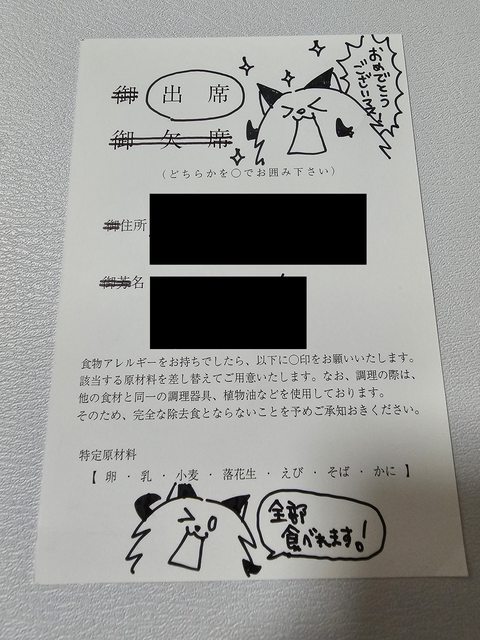 御 出 席
おめでとう
ございます!
御 欠 席
(どちらかを〇でお囲み下さい)
御住所
御芳名
食物アレルギーをお持ちでしたら、以下に〇印をお願いいたします。
該当する原材料を差し替えてご用意いたします。なお、調理の際は、
他の食材と同一の調理器具、植物油などを使用しております。
そのため、完全な除去食とならないことを予めご承知おきください。
特定原材料
【 卵 ・ 乳 ・ 小麦 ・ 落花生 ・ えび ・ そば ・ かに 】
全部
食べれます!